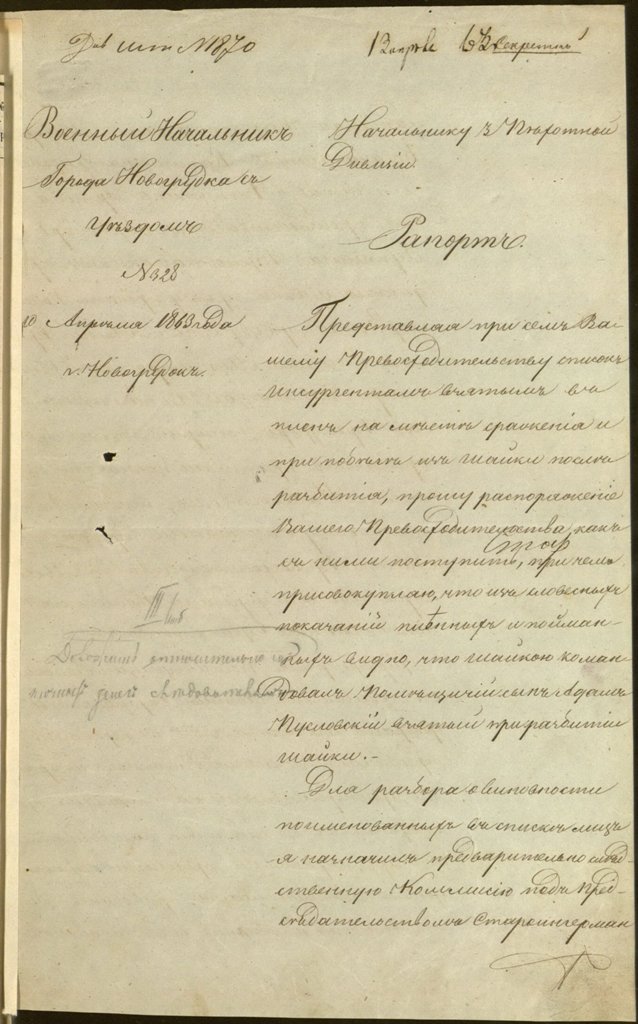 № 1870
Секретно
Военный Начальникъ
Города Новогрудка съ
уѣздомъ
№ 328
10 Апрѣля 1863 года
г. Новогрудокъ.
Начальнику 3 Пѣхотной
Дивизіи.
Рапортъ.
Представляя при семъ Ва-
шему Превосходительству списокъ
инсургентамъ взятымъ въ
плѣнъ на мѣстѣ сраженія и
при побѣгѣ изъ шайки послѣ
разбитія, прошу распоряженіе
Вашего Превосходительства, какъ
съ ними поступить, при чемъ
присовокупляю, что изъ словесныхъ
показаній плѣнныхъ и пойман-
ныхъ видно, что шайкою коман-
довалъ Помѣщичій сынъ Адамъ
Пусловскій взятый при разбитіи
шайки.-
Для разбора о виновности
поименованныхъ въ спискѣ лицъ
я назначилъ предварительно слѣд-
ственную Коммисію подъ Пред-
сѣдательствомъ Староингерман
III